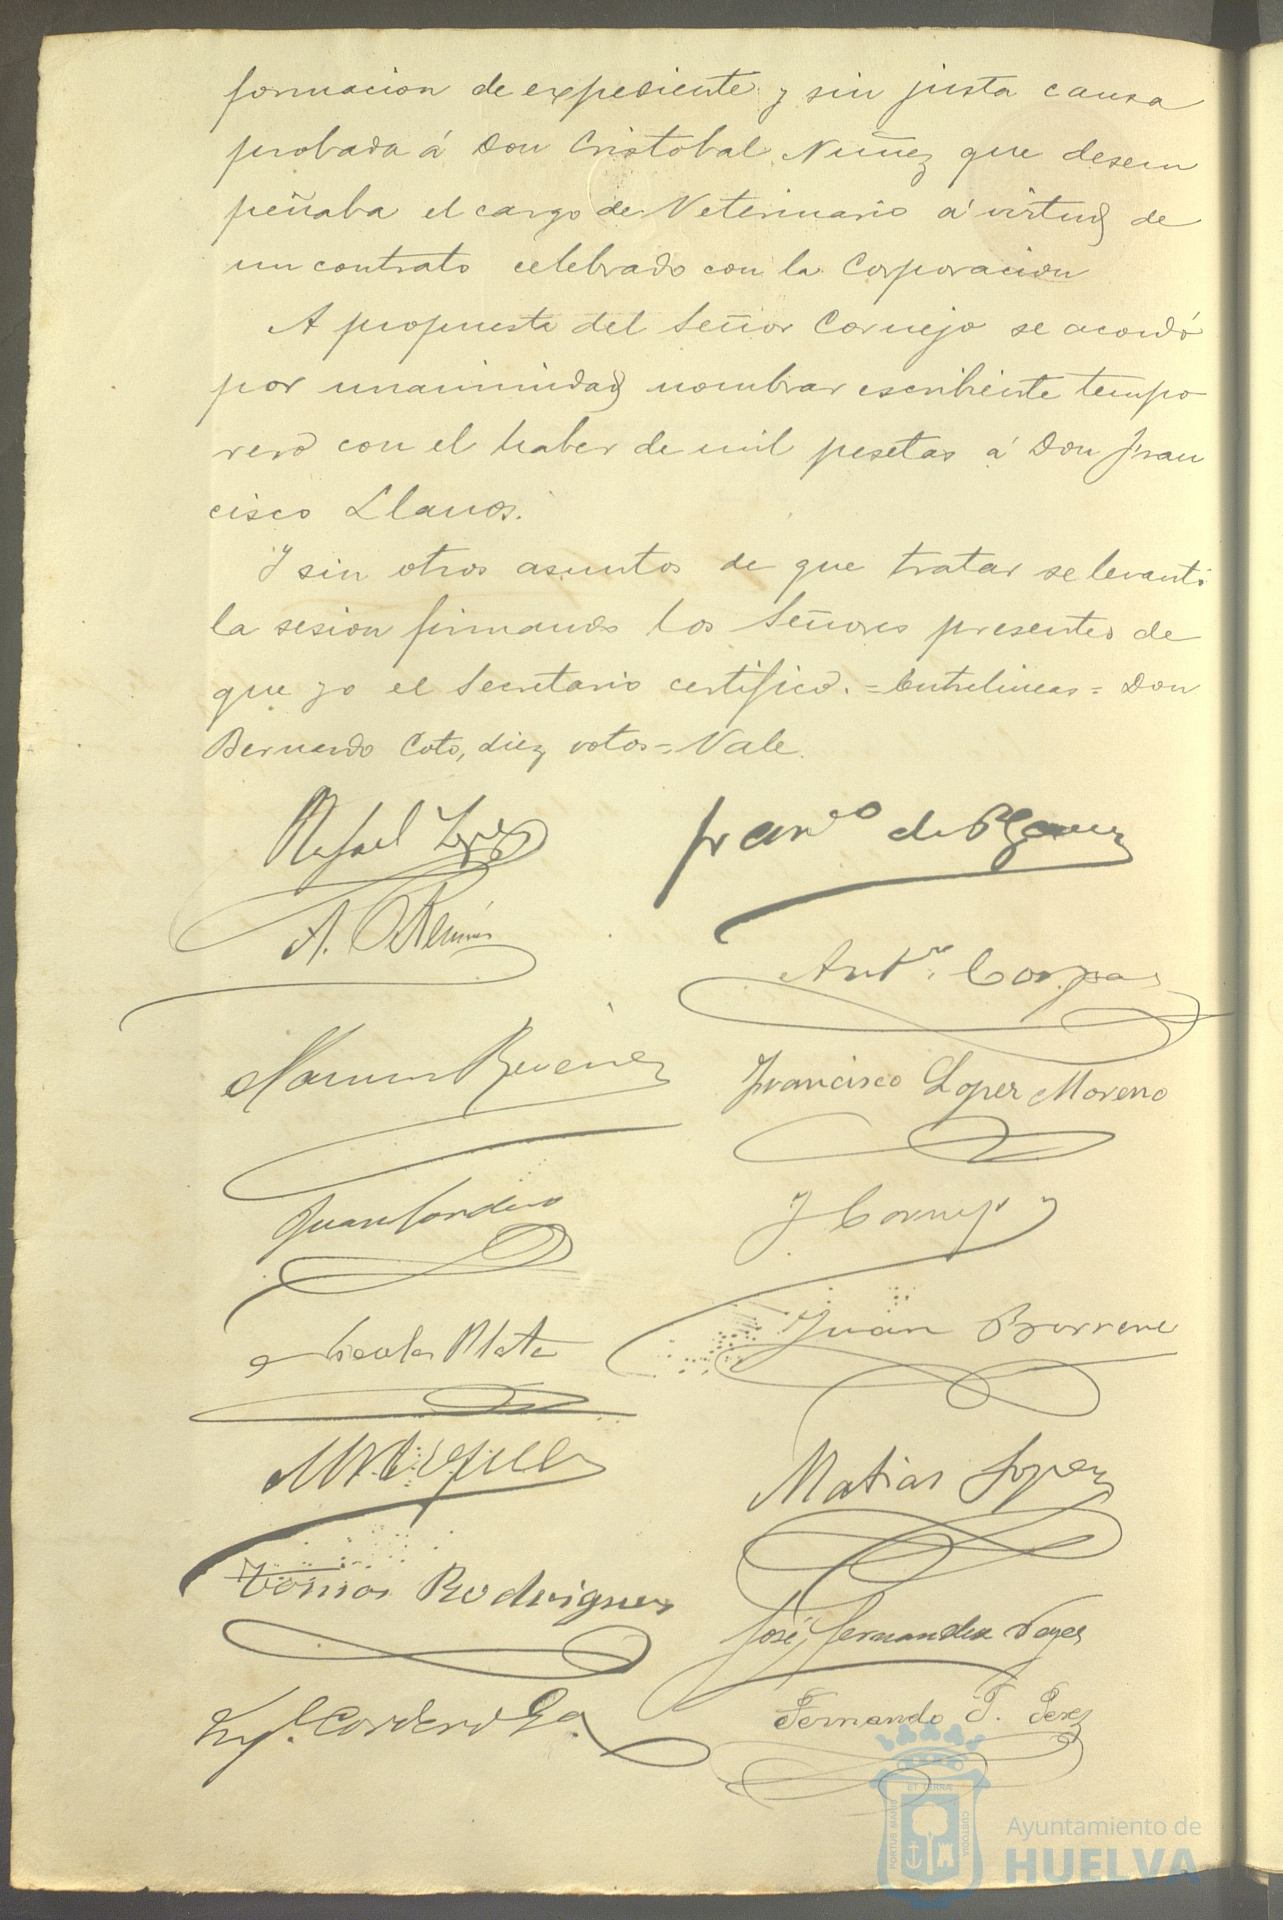 formacion de expediente y sin justa causa
probada á Don Cristobal Nuñez que desem
peñaba el cargo de Veterinario a virtud de
un contrato celebrado con la Corporacion
A propuesta del Señor Cornejo se acordó
por unanimidad nombrar escribiente tempo
rero con el haber de mil pesetas á Don Fran
cisco Llanos.
Y sin otros asuntos de que tratar se levantó
la sesion firmando los Señores presentes de
que yo el Secretario certifico. = Entrelineas = Don
Bernardo Coto, diez votos = Vale.
Rafael Lopez
Franco de P
A.
Antº Corpas
Francisco Lopez Moreno
Juan Cordero
J Cornejo
Nicolas Plata
Juan Borrero
Matias Lopez
Tomas Rodriguez
José Fernandez
Cordero
Fernando T. Perez
ET TERRÆ
PORTUS MARIS
CUSTODIA
Ayuntamiento de
HUELVA